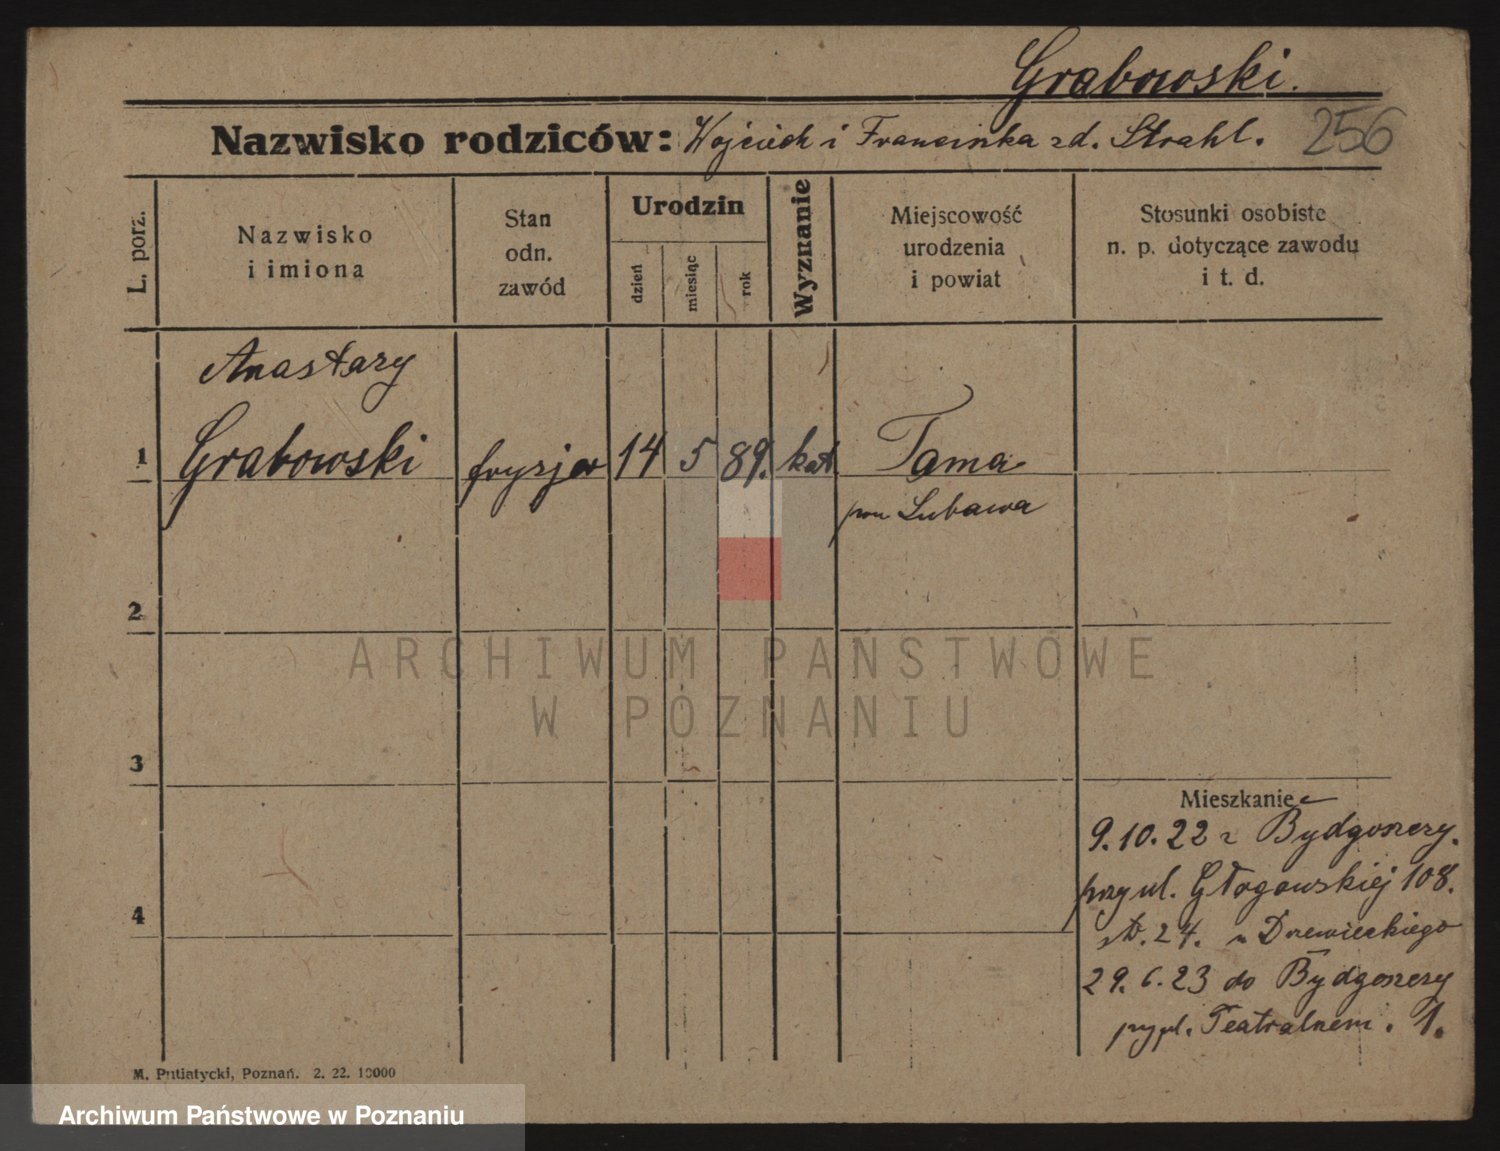 Grabowski.
Nazwisko rodziców: Wojciech i Franciszka zd. Strahl. 256
L. porz.
Nazwisko
i imiona
Stan
odn.
zawód
Urodzin
dzień
miesiąc
rok
Wyznanie
Miejscowość
urodzenia
i powiat
Stosunki osobiste
n. p. dotyczące zawodu
i t. d.
Anastazy
1 Grabowski fryzjer 14 5 89. kat. Tama
pow Lubawa
2
ARCHIWUM PAŃSTWOWE
W POZNANIU
3
Mieszkanie
9.10.22 z Bydgoszczy.
przy ul. Głogowskiej 108.
24. u Drewieckiego
4
29.6.23 do Bydgoszczy
przy pl. Teatralnem. 1.
M. Putiatycki, Poznań. 2. 22. 10000
Archiwum Państwowe w Poznaniu